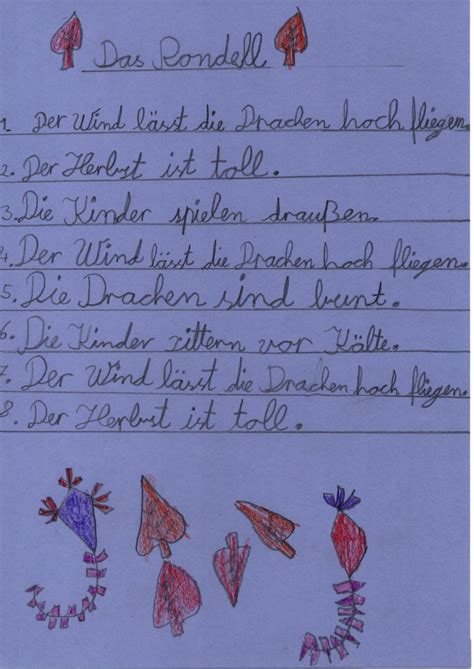 Das Rondell
1. Der Wind lässt die Drachen hoch fliegen.
2. Der Herbst ist toll.
3. Die Kinder spielen draußen.
4. Der Wind lässt die Drachen hoch fliegen.
5. Die Drachen sind bunt.
6. Die Kinder zittern vor Kälte.
7. Der Wind lässt die Drachen hoch fliegen.
8. Der Herbst ist toll.